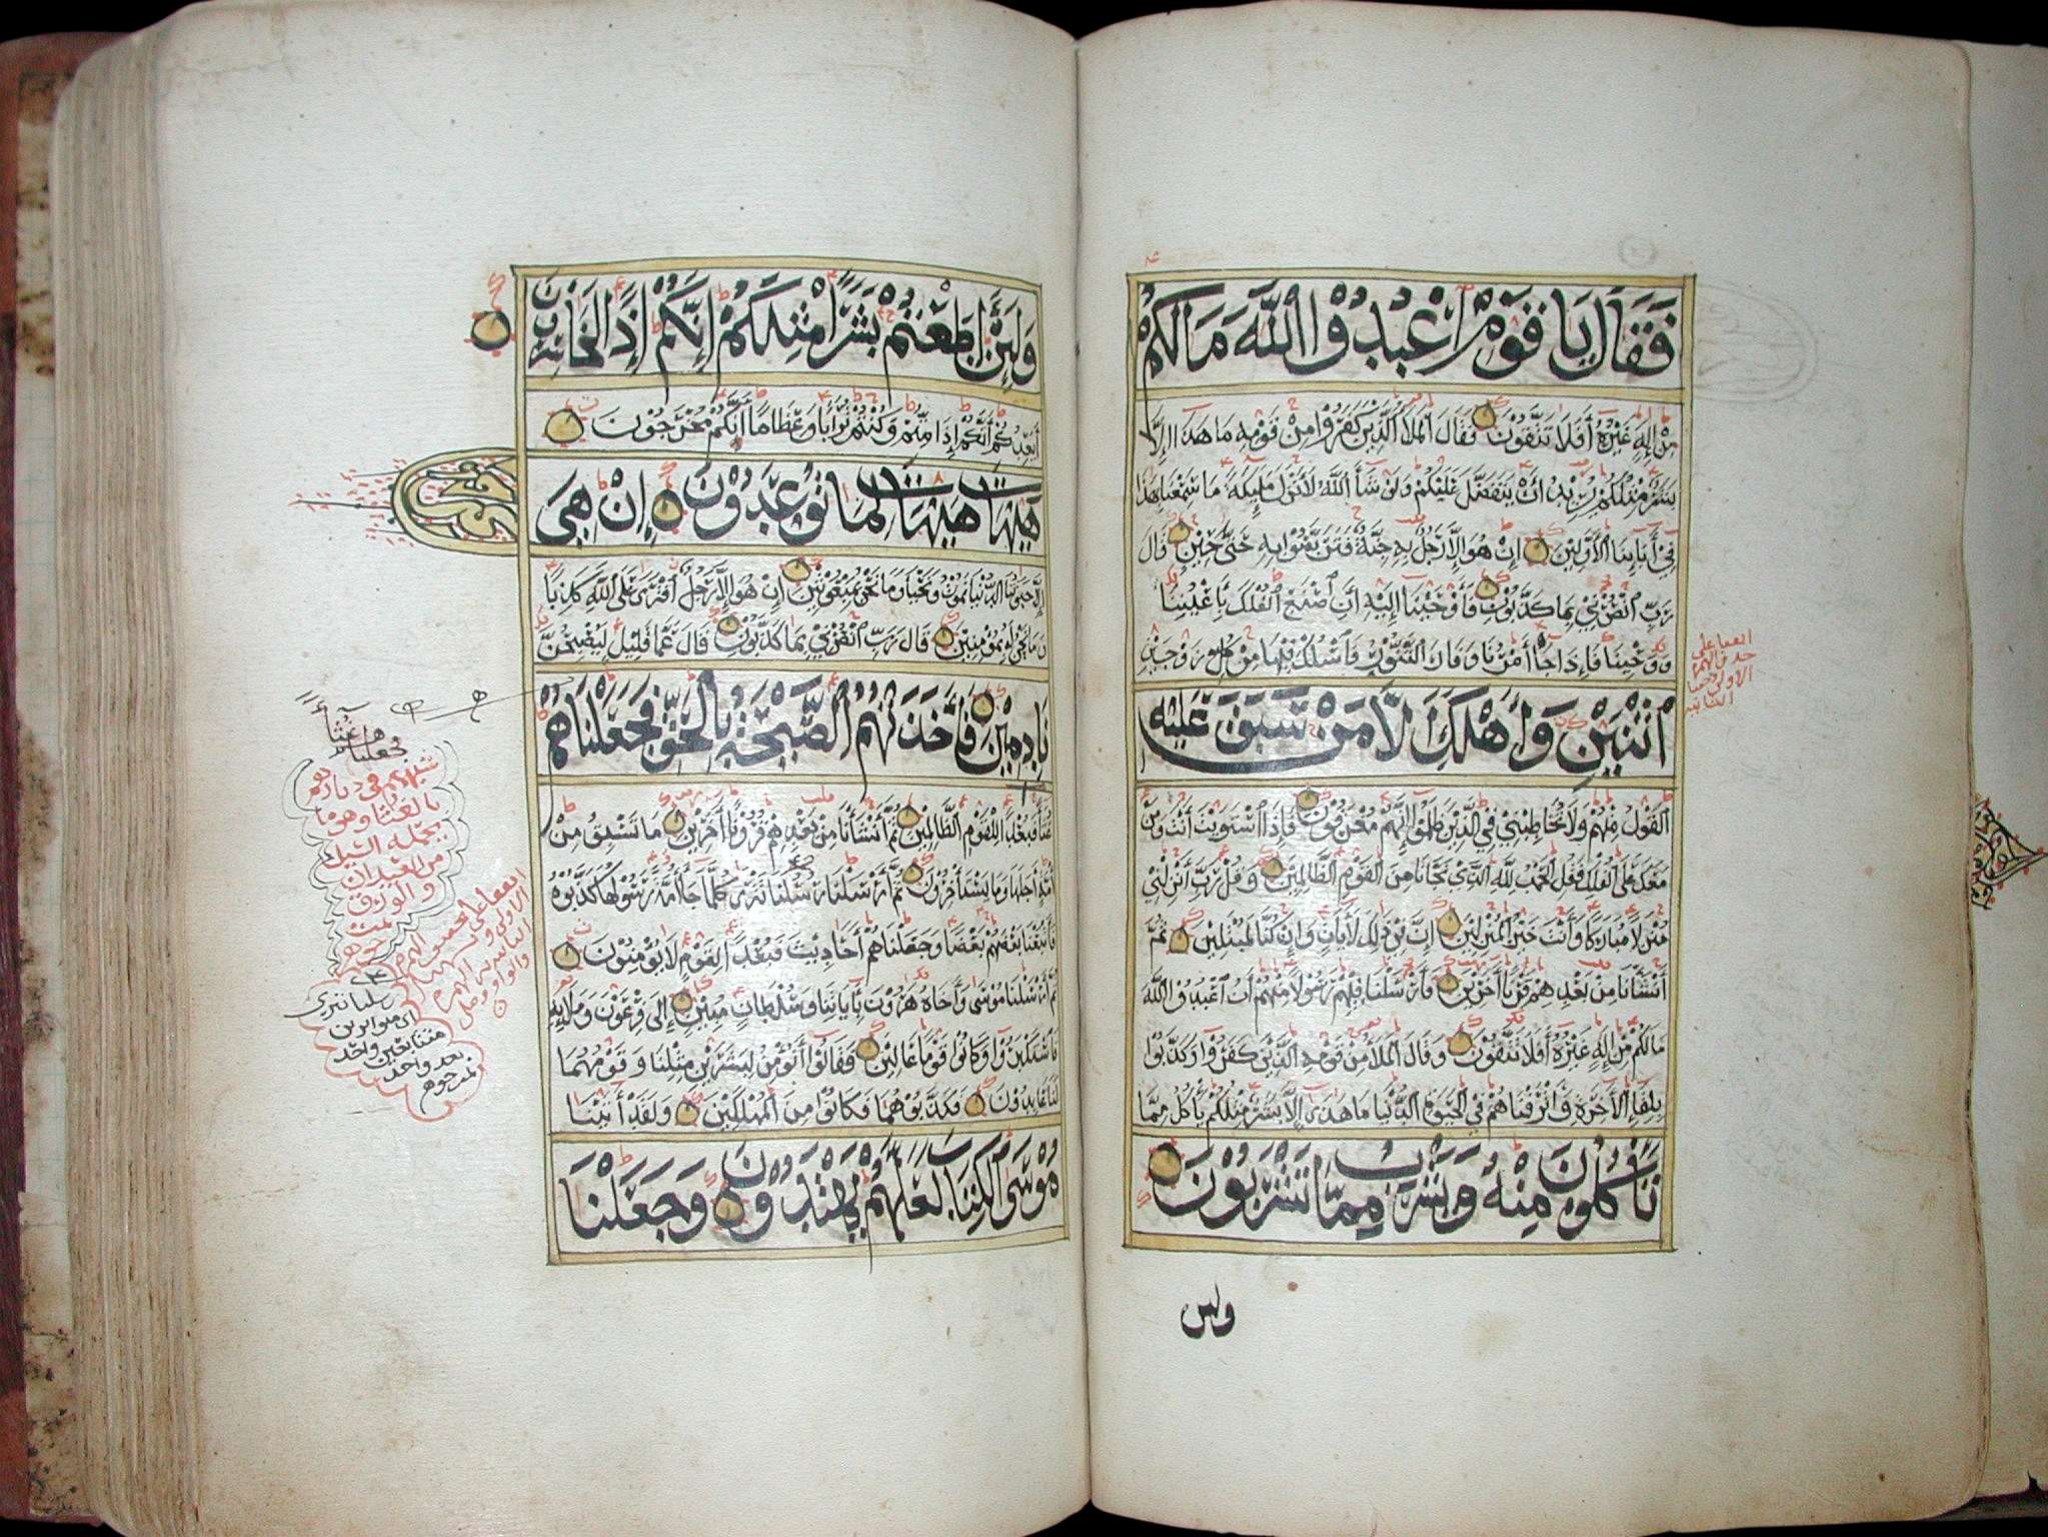 فَقَالَ يَا قَوْمِ اعْبُدُوا اللَّهَ مَا لَكُمْ
مِنْ إِلَهٍ غَيْرُهُ أَفَلَا تَتَّقُونَ فَقَالَ الْمَلَأُ الَّذِينَ كَفَرُوا مِنْ قَوْمِهِ مَا هَذَا إِلَّا
بَشَرٌ مِثْلُكُمْ يُرِيدُ أَنْ يَتَفَضَّلَ عَلَيْكُمْ وَلَوْ شَاءَ اللَّهُ لَأَنْزَلَ مَلَئِكَةً مَا سَمِعْنَا بِهَذَا
فِي آبَائِنَا الْأَوَّلِينَ إِنْ هُوَ إِلَّا رَجُلٌ بِهِ جِنَّةٌ فَتَرَبَّصُوا بِهِ حَتَّى حِينٍ قَالَ
رَبِّ انْصُرْنِي بِمَا كَذَّبُونِ فَأَوْحَيْنَا إِلَيْهِ أَنِ اصْنَعِ الْفُلْكَ بِأَعْيُنِنَا
وَوَحْيِنَا فَإِذَا جَاءَ أَمْرُنَا وَفَارَ التَّنُّورُ فَاسْلُكْ فِيهَا مِنْ كُلٍّ زَوْجَيْنِ
اثْنَيْنِ وَأَهْلَكَ إِلَّا مَنْ سَبَقَ عَلَيْهِ
الْقَوْلُ مِنْهُمْ وَلَا تُخَاطِبْنِي فِي الَّذِينَ ظَلَمُوا إِنَّهُمْ مُغْرَقُونَ فَإِذَا اسْتَوَيْتَ أَنْتَ وَمَنْ
مَعَكَ عَلَى الْفُلْكِ فَقُلِ الْحَمْدُ لِلَّهِ الَّذِي نَجَّانَا مِنَ الْقَوْمِ الظَّالِمِينَ وَقُلْ رَبِّ أَنْزِلْنِي
مُنْزَلًا مُبَارَكًا وَأَنْتَ خَيْرُ الْمُنْزِلِينَ إِنَّ فِي ذَلِكَ لَآيَاتٍ وَإِنْ كُنَّا لَمُبْتَلِينَ ثُمَّ
أَنْشَأْنَا مِنْ بَعْدِهِمْ قَرْنًا آخَرِينَ فَأَرْسَلْنَا فِيهِمْ رَسُولًا مِنْهُمْ أَنِ اعْبُدُوا اللَّهَ
مَا لَكُمْ مِنْ إِلَهٍ غَيْرُهُ أَفَلَا تَتَّقُونَ وَقَالَ الْمَلَأُ مِنْ قَوْمِهِ الَّذِينَ كَفَرُوا وَكَذَّبُوا
بِلِقَاءِ الْآخِرَةِ وَأَتْرَفْنَاهُمْ فِي الْحَيَوةِ الدُّنْيَا مَا هَذَا إِلَّا بَشَرٌ مِثْلُكُمْ يَأْكُلُ مِمَّا
تَأْكُلُونَ مِنْهُ وَيَشْرَبُ مِمَّا تَشْرَبُونَ
ولئن
وَلَئِنْ أَطَعْتُمْ بَشَرًا مِثْلَكُمْ إِنَّكُمْ إِذًا لَخَاسِرُونَ
أَيَعِدُكُمْ أَنَّكُمْ إِذَا مِتُّمْ وَكُنْتُمْ تُرَابًا وَعِظَامًا أَنَّكُمْ مُخْرَجُونَ
هَيْهَاتَ هَيْهَاتَ لِمَا تُوعَدُونَ إِنْ هِيَ
إِلَّا حَيَاتُنَا الدُّنْيَا نَمُوتُ وَنَحْيَا وَمَا نَحْنُ بِمَبْعُوثِينَ إِنْ هُوَ إِلَّا رَجُلٌ افْتَرَى عَلَى اللَّهِ كَذِبًا
وَمَا نَحْنُ لَهُ بِمُؤْمِنِينَ قَالَ رَبِّ انْصُرْنِي بِمَا كَذَّبُونِ قَالَ عَمَّا قَلِيلٍ لَيُصْبِحُنَّ
نَادِمِينَ فَأَخَذَتْهُمُ الصَّيْحَةُ بِالْحَقِّ فَجَعَلْنَاهُمْ
غُثَاءً فَبُعْدًا لِلْقَوْمِ الظَّالِمِينَ ثُمَّ أَنْشَأْنَا مِنْ بَعْدِهِمْ قُرُونًا آخَرِينَ مَا تَسْبِقُ مِنْ
أُمَّةٍ أَجَلَهَا وَمَا يَسْتَأْخِرُونَ ثُمَّ أَرْسَلْنَا رُسُلَنَا تَتْرَى كُلَّمَا جَاءَ أُمَّةً رَسُولُهَا كَذَّبُوهُ
فَأَتْبَعْنَا بَعْضَهُمْ بَعْضًا وَجَعَلْنَاهُمْ أَحَادِيثَ فَبُعْدًا لِقَوْمٍ لَا يُؤْمِنُونَ
ثُمَّ أَرْسَلْنَا مُوسَى وَأَخَاهُ هَرُونَ بِآيَاتِنَا وَسُلْطَانٍ مُبِينٍ إِلَى فِرْعَوْنَ وَمَلَئِهِ
فَاسْتَكْبَرُوا وَكَانُوا قَوْمًا عَالِينَ فَقَالُوا أَنُؤْمِنُ لِبَشَرَيْنِ مِثْلِنَا وَقَوْمُهُمَا
لَنَا عَابِدُونَ فَكَذَّبُوهُمَا فَكَانُوا مِنَ الْمُهْلَكِينَ وَلَقَدْ آتَيْنَا
مُوسَى الْكِتَابَ لَعَلَّهُمْ يَهْتَدُونَ وَجَعَلْنَا
فجعلناهم غثاءً
شبههم في دمارهم
بالغثا وهو ما
يحمله السيل
من العيدان
والورق
تمت
جوهر
رسلنا تترى
اي متواترين
متتابعين واحد
بعد واحد
تمت جوهر